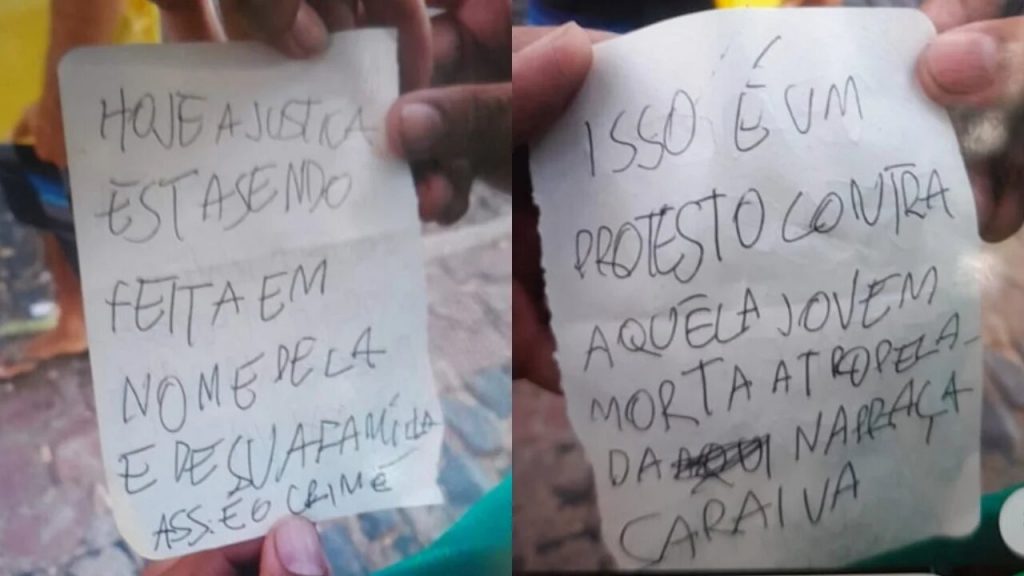 HOJE A JUSTIÇA
ESTA SENDO
FEITA EM
NOME DELA
E DE SUA FAMÍLIA
ASS. É O CRIME
ISSO É UM
PROTESTO CONTRA
AQUELA JOVEM
MORTA ATROPELA-
DA AQUI NA PRAÇA
CARAIVA